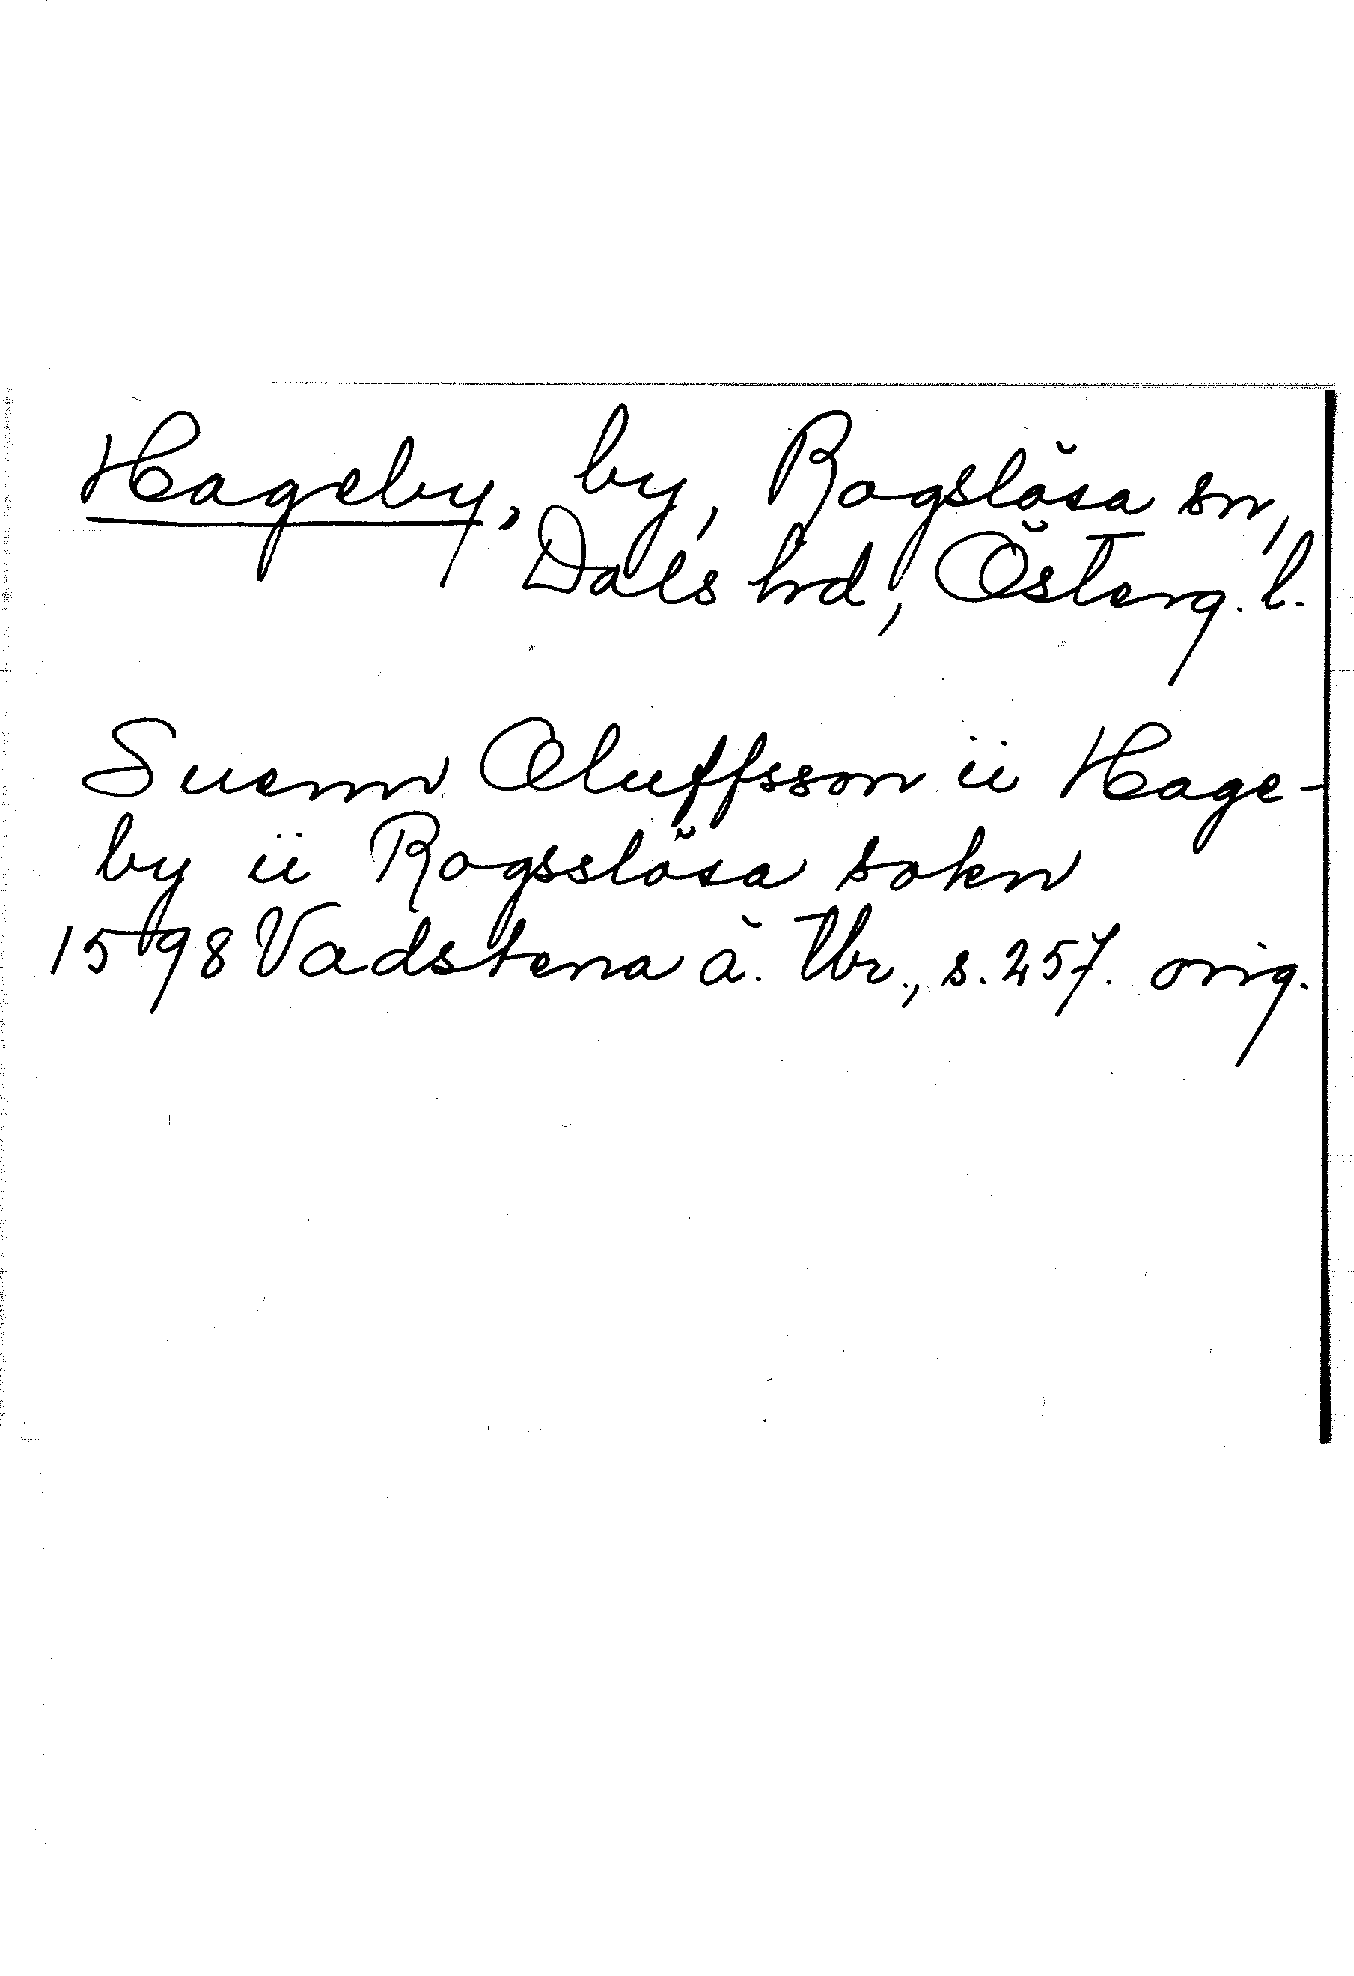 Hageby, by, Rogslösa sn,
Dals hd, Österg. l.
Suenn Oluffsson ii Hage-
by ii Rogsslösa sokn
1598 Vadstena ä. Tbr., s. 257. orig.